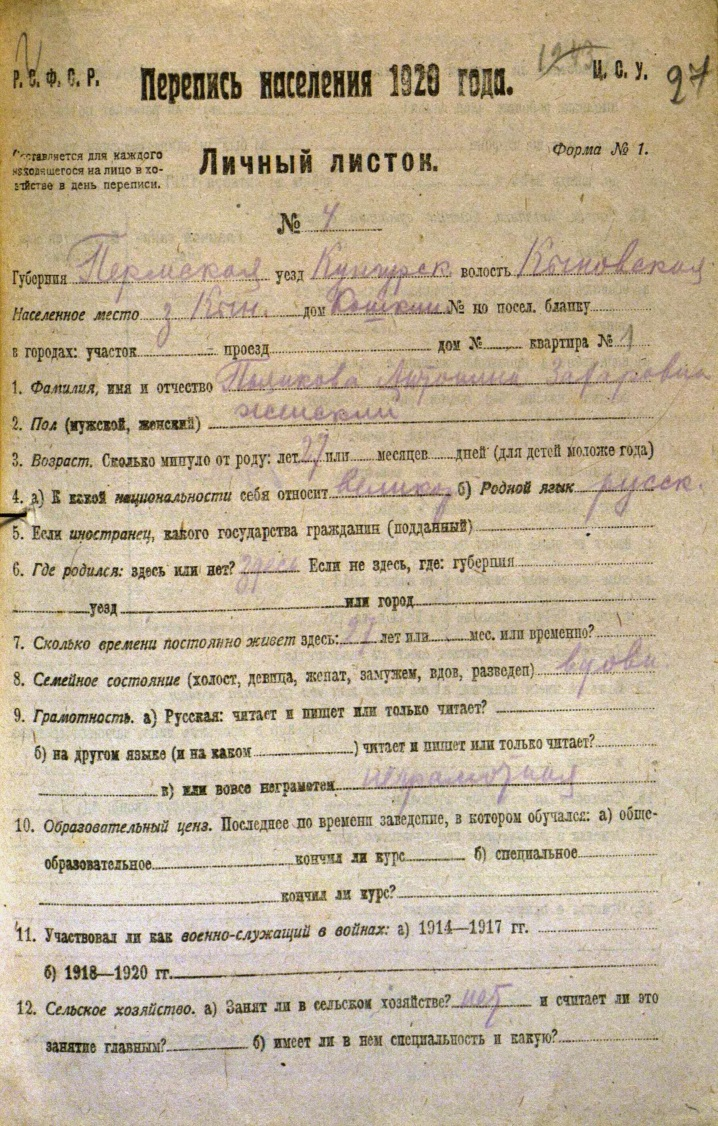 Р. С. Ф. С. Р.
Перепись населения 1920 года.
Ц. С. У.
27
Составляется для каждого
находящегося на лицо в хо-
зяйстве в день переписи.
Личный листок.
Форма № 1.
№ 4
Губерния Пермская уезд Кунгурск волость Кыновская
Населенное место з Кын. дом Кошкин № по посел. бланку
в городах: участок проезд дом № квартира № 1
1. Фамилия, имя и отчество Полякова Антонина Захаровна
2. Пол (мужской, женский) женский
3. Возраст. Сколько минуло от роду: лет 27 или месяцев дней (для детей моложе года)
4. а) К какой национальности себя относит великор б) Родной язык русск.
5. Если иностранец, какого государства гражданин (подданный)
6. Где родился: здесь или нет? здесь Если не здесь, где: губерния
уезд или город
7. Сколько времени постоянно живет здесь: 27 лет или мес. или временно?
8. Семейное состояние (холост, девица, женат, замужем, вдов, разведен) вдова
9. Грамотность. а) Русская: читает и пишет или только читает?
б) на другом языке (и на каком ) читает и пишет или только читает?
в) или вовсе неграмотен неграмотная
10. Образовательный ценз. Последнее по времени заведение, в котором обучался: а) обще-
образовательное кончил ли курс б) специальное
кончил ли курс?
11. Участвовал ли как военно-служащий в войнах: а) 1914—1917 гг.
б) 1918—1920 гг.
12. Сельское хозяйство. а) Занят ли в сельском хозяйстве? нет и считает ли это
занятие главным? б) имеет ли в нем специальность и какую?